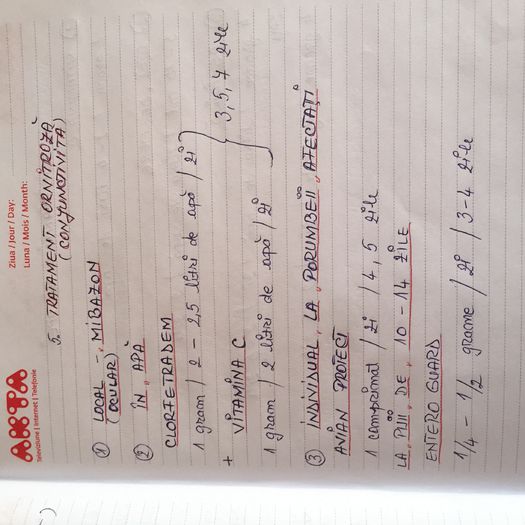 AKTA
Televiziune | Internet | Telefonie
Ziua / Jour / Day:
Luna / Mois / Month:
5. TRATAMENT ORNITROZĂ
(CONJUNCTIVITĂ)
① LOCAL - MIBAZON
(OCULAR)
② ÎN APĂ
CLORTETRADEM
1 gram / 2 - 2,5 litri de apă / zi
+ VITAMINA C
3, 5, 7 zile
1 gram / 2 litri de apă / zi
③ INDIVIDUAL LA PORUMBEII AFECTAȚI
AVIAN PROTECT
1 comprimat / zi / 4, 5 zile
LA PUII DE 10 - 14 ZILE
ENTERO GUARD
1/4 - 1/2 grame / zi / 3-4 zile